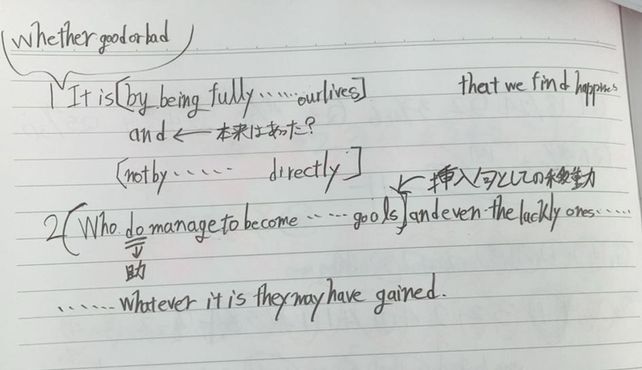 whether good or bad
1 It is [by being fully ...... our lives] that we find happines
and ← 本来はあった?
[not by ..... directly]
← 挿入句としての
2 (Who do manage to become ..... goals] and even the lackly ones.....
↓
助
...... whatever it is they may have gained.